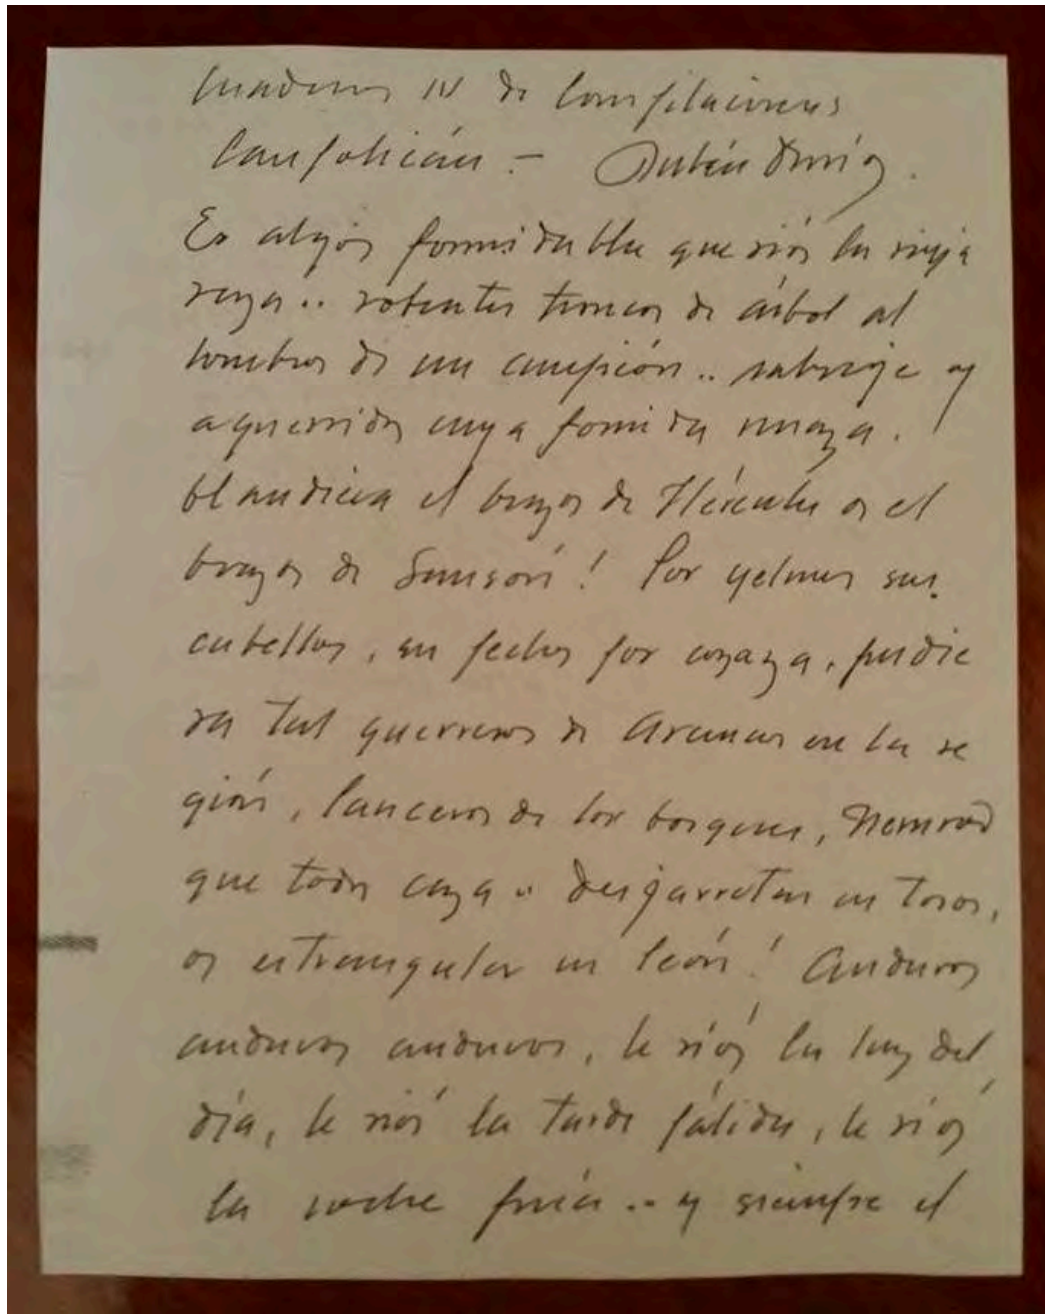 Cuaderno IV de Compilaciones
Caupolicán - Rubén Darío.
Es algo formidable que vió la vieja
raza.. robusto tronco de árbol al
hombro de un campeón.. salvaje y
aguerrido cuya fornida maza.
blandiera el brazo de Hércules o el
brazo de Sansón! Por yelmo sus
cabellos, su pecho por coraza, pudie
ra tal guerrero de Arauco en la re
gión, lancero de los bosques, Nemrod
que todo caza.. desjarretar un toro,
o estrangular un león! Anduvo
anduvo anduvo, le vió la luz del
día, le vió la tarde pálida, le vió
la noche fría.. y siempre el